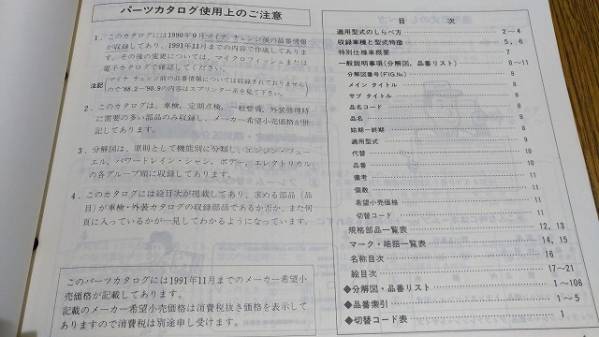 パーツカタログ使用上のご注意
1. このカタログは1990年9月マイナ チェンジ後の品番情報
が収録してあり、1991年11月までの内容で作成してありま
す。その後の変更については、マイクロフィッシュまたは
電子カタログで確認してください。
注記
マイナ チェンジ前の品番情報については収録されておりません
ので'88.2～'90.9の内容はスプリンター系を見て下さい。
2. このカタログは、車検、定期点検、一般整備、外装修理時
に需要の多い部品のみ収録し、メーカー希望小売価格が併
記してあります。
3. 分解図は、原則として機能別に分類し、エンジン・フュー
エル、パワートレイン・シャシ、ボデー、エレクトリカル
の各グループ順に収録してあります。
4. このカタログには絵目次が掲載してあり、求める部品（品
目）が車検・外装カタログの収録部品であるか否か、また何
頁に入っているかが一見してわかるようになっています。
このパーツカタログには1991年11月までのメーカー希望小
売価格が記載してあります。
記載のメーカー希望小売価格は消費税抜き価格を表示して
ありますので消費税は別途申し受けます。
目 次
適用型式のしらべ方 2～4
収録車種と型式特徴 5, 6
特別仕様車概要 7
一般説明事項(分解図、品番リスト) 8～11
分解図番号(FIG.No.) 8
メイン タイトル 8
サブ タイトル 8
品名コード 8
品名 8
始期－終期 8
適用型式 9
代替 10
品番 10
備考 11
個数 11
希望小売価格 11
切替コード 11
規格部品一覧表 12, 13
マーク・略語一覧表 14, 15
名称目次 16
絵目次 17～21
◆分解図・品番リスト 1～106
◆品番索引 1～5
◆切替コード表 1